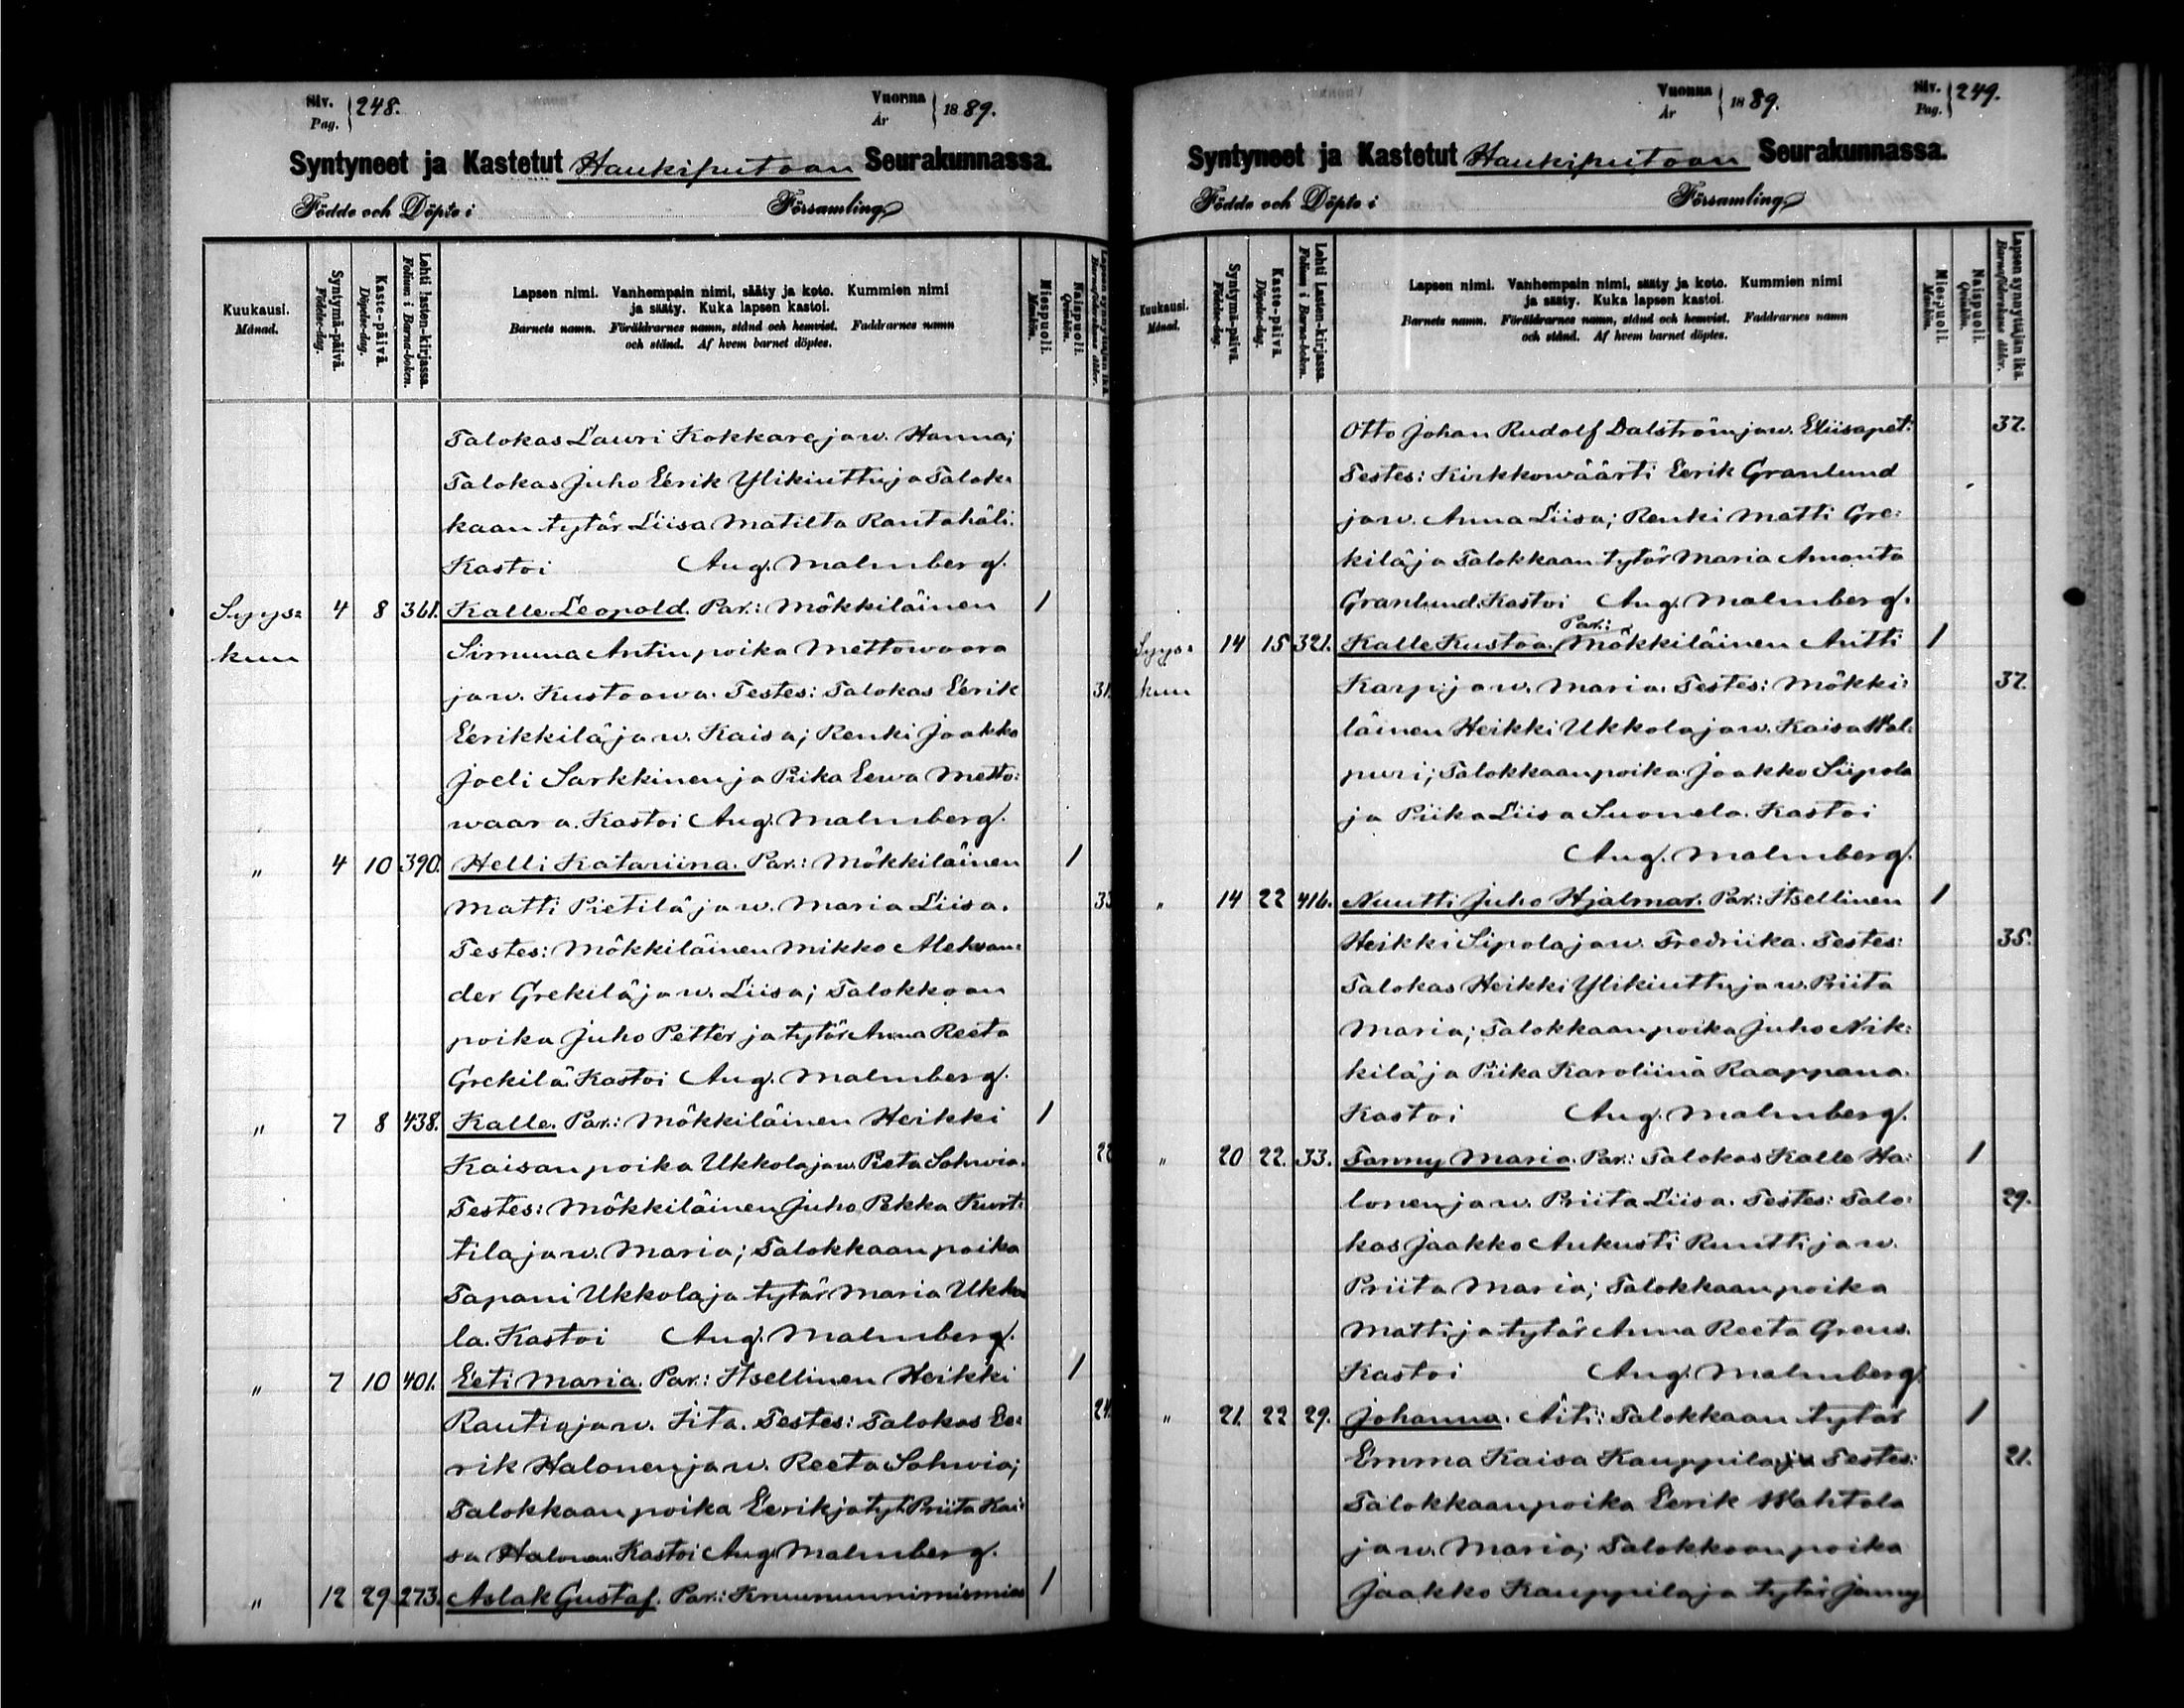 Siv. Pag. 248.
Vuonna År 1889.
Syntyneet ja Kastetut Haukiputaan Seurakunnassa.
Födde och Döpte i Församling
Kuukausi. Månad.
Syntymä-päivä. Födelse-dag.
Kaste-päivä. Döpelse-dag.
Lehti lasten-kirjassa. Folium i Barna-boken.
Lapsen nimi. Vanhempain nimi, sääty ja koto. Kummien nimi
ja sääty. Kuka lapsen kastoi.
Barnets namn. Föräldrarnes namn, stånd och hemvist. Faddrarnes namn
och stånd. Af hvem barnet döptes.
Miespuoli. Mankön.
Naispuoli. Qvinkön.
Lapsen synnyttäjän ikä. Barnaföderskans ålder.
Talokas Lauri Kokkare ja w. Hanna;
Talokas Juho Eerik Ylikiuttu ja Talok-
kaan tytär Liisa Matilta Rantahäli.
Kastoi Aug. Malmberg.
Syys= 4 8 361. Kalle Leopold. Par.: Mökkiläinen 1
kuu Simuna Antinpoika Mettowaara
ja w. Kustaawa. Testes: Talokas Eerik 31.
Eerikkilä ja w. Kaisa; Renki Jaakko
Joeli Sarkkinen ja Piika Eewa Metto:
waara. Kastoi Aug. Malmberg.
" 4 10 390. Helli Katariina. Par.: Mökkiläinen 1
Matti Pietilä ja w. Maria Liisa. 33
Testes: Mökkiläinen Mikko Aleksan:
der Grekilä ja w. Liisa; Talokkaan
poika Juho Petter ja tytär Anna Reeta
Grekilä. Kastoi Aug. Malmberg.
" 7 8 438. Kalle. Par.: Mökkiläinen Heikki 1
Kaisanpoika Ukkola ja w. Reta Sohwia. 22
Testes: Mökkiläinen Juho Pekka Kurt:
tila ja w. Maria; Talokkaan poika
Tapani Ukkola ja tytär Maria Ukko
la. Kastoi Aug. Malmberg.
" 7 10 401. Eeti Maria. Par.: Itsellinen Heikki 1
Rautio ja w. Iita. Testes: Talokas Ee: 24.
rik Halonen ja w. Reeta Sohwia;
Talokkaan poika Eerik ja tyt. Priita Kai:
sa Halonen. Kastoi Aug. Malmberg.
" 12 29 273. Aslak Gustaf. Par.: Kruununnimismies 1
Vuonna År 1889.
Siv. Pag. 249.
Syntyneet ja Kastetut Haukiputaan Seurakunnassa.
Födde och Döpte i Församling
Kuukausi. Månad.
Syntymä-päivä. Födelse-dag.
Kaste-päivä. Döpelse-dag.
Lehti Lasten-kirjassa. Folium i Barna-boken.
Lapsen nimi. Vanhempain nimi, sääty ja koto. Kummien nimi
ja sääty. Kuka lapsen kastoi.
Barnets namn. Föräldrarnes namn, stånd och hemvist. Faddrarnes namn
och stånd. Af hvem barnet döptes.
Miespuoli. Mankön.
Naispuoli. Qvinkön.
Lapsen synnyttäjän ikä. Barnaföderskans ålder.
Otto Johan Rudolf Dalström ja w. Eliisapet. 37.
Testes: Kirkkowäärti Eerik Granlund
ja w. Anna Liisa; Renki Matti Gre:
kilä ja Talokkaan tytär Maria Amanta
Granlund. Kastoi Aug. Malmberg.
Syys: 14 15 321. Kalle Kustaa. Par.: Mökkiläinen Antti 1
kuu Karpi ja w. Maria. Testes: Mökki: 37.
läinen Heikki Ukkola ja w. Kaisa Wal:
puri; Talokkaanpoika Jaakko Siipola
ja Piika Liisa Suomela. Kastoi
Aug. Malmberg.
" 14 22 416. Nuutti Juho Hjalmar. Par.: Itsellinen 1
Heikki Sipola ja w. Fredriika. Testes: 35.
Talokas Heikki Ylikiuttu ja w. Priita
Maria; Talokkaanpoika Juho Nik:
kilä ja Piika Karoliina Raappana.
Kastoi Aug. Malmberg.
" 20 22. 33. Fanny Maria. Par.: Talokas Kalle Ha: 1
lonen ja w. Priita Liisa. Testes: Talo: 29.
kas Jaakko Aukusti Ruutti ja w.
Priita Maria; Talokkaanpoika
Matti ja tytär Anna Reeta Greus.
Kastoi Aug. Malmberg.
" 21. 22 29. Johanna. Äiti: Talokkaan tytär 1
Emma Kaisa Kauppila. Testes: 21.
Talokkaanpoika Eerik Mahtola
ja w. Maria; Talokkaan poika
Jaakko Kauppila ja tytär Janny